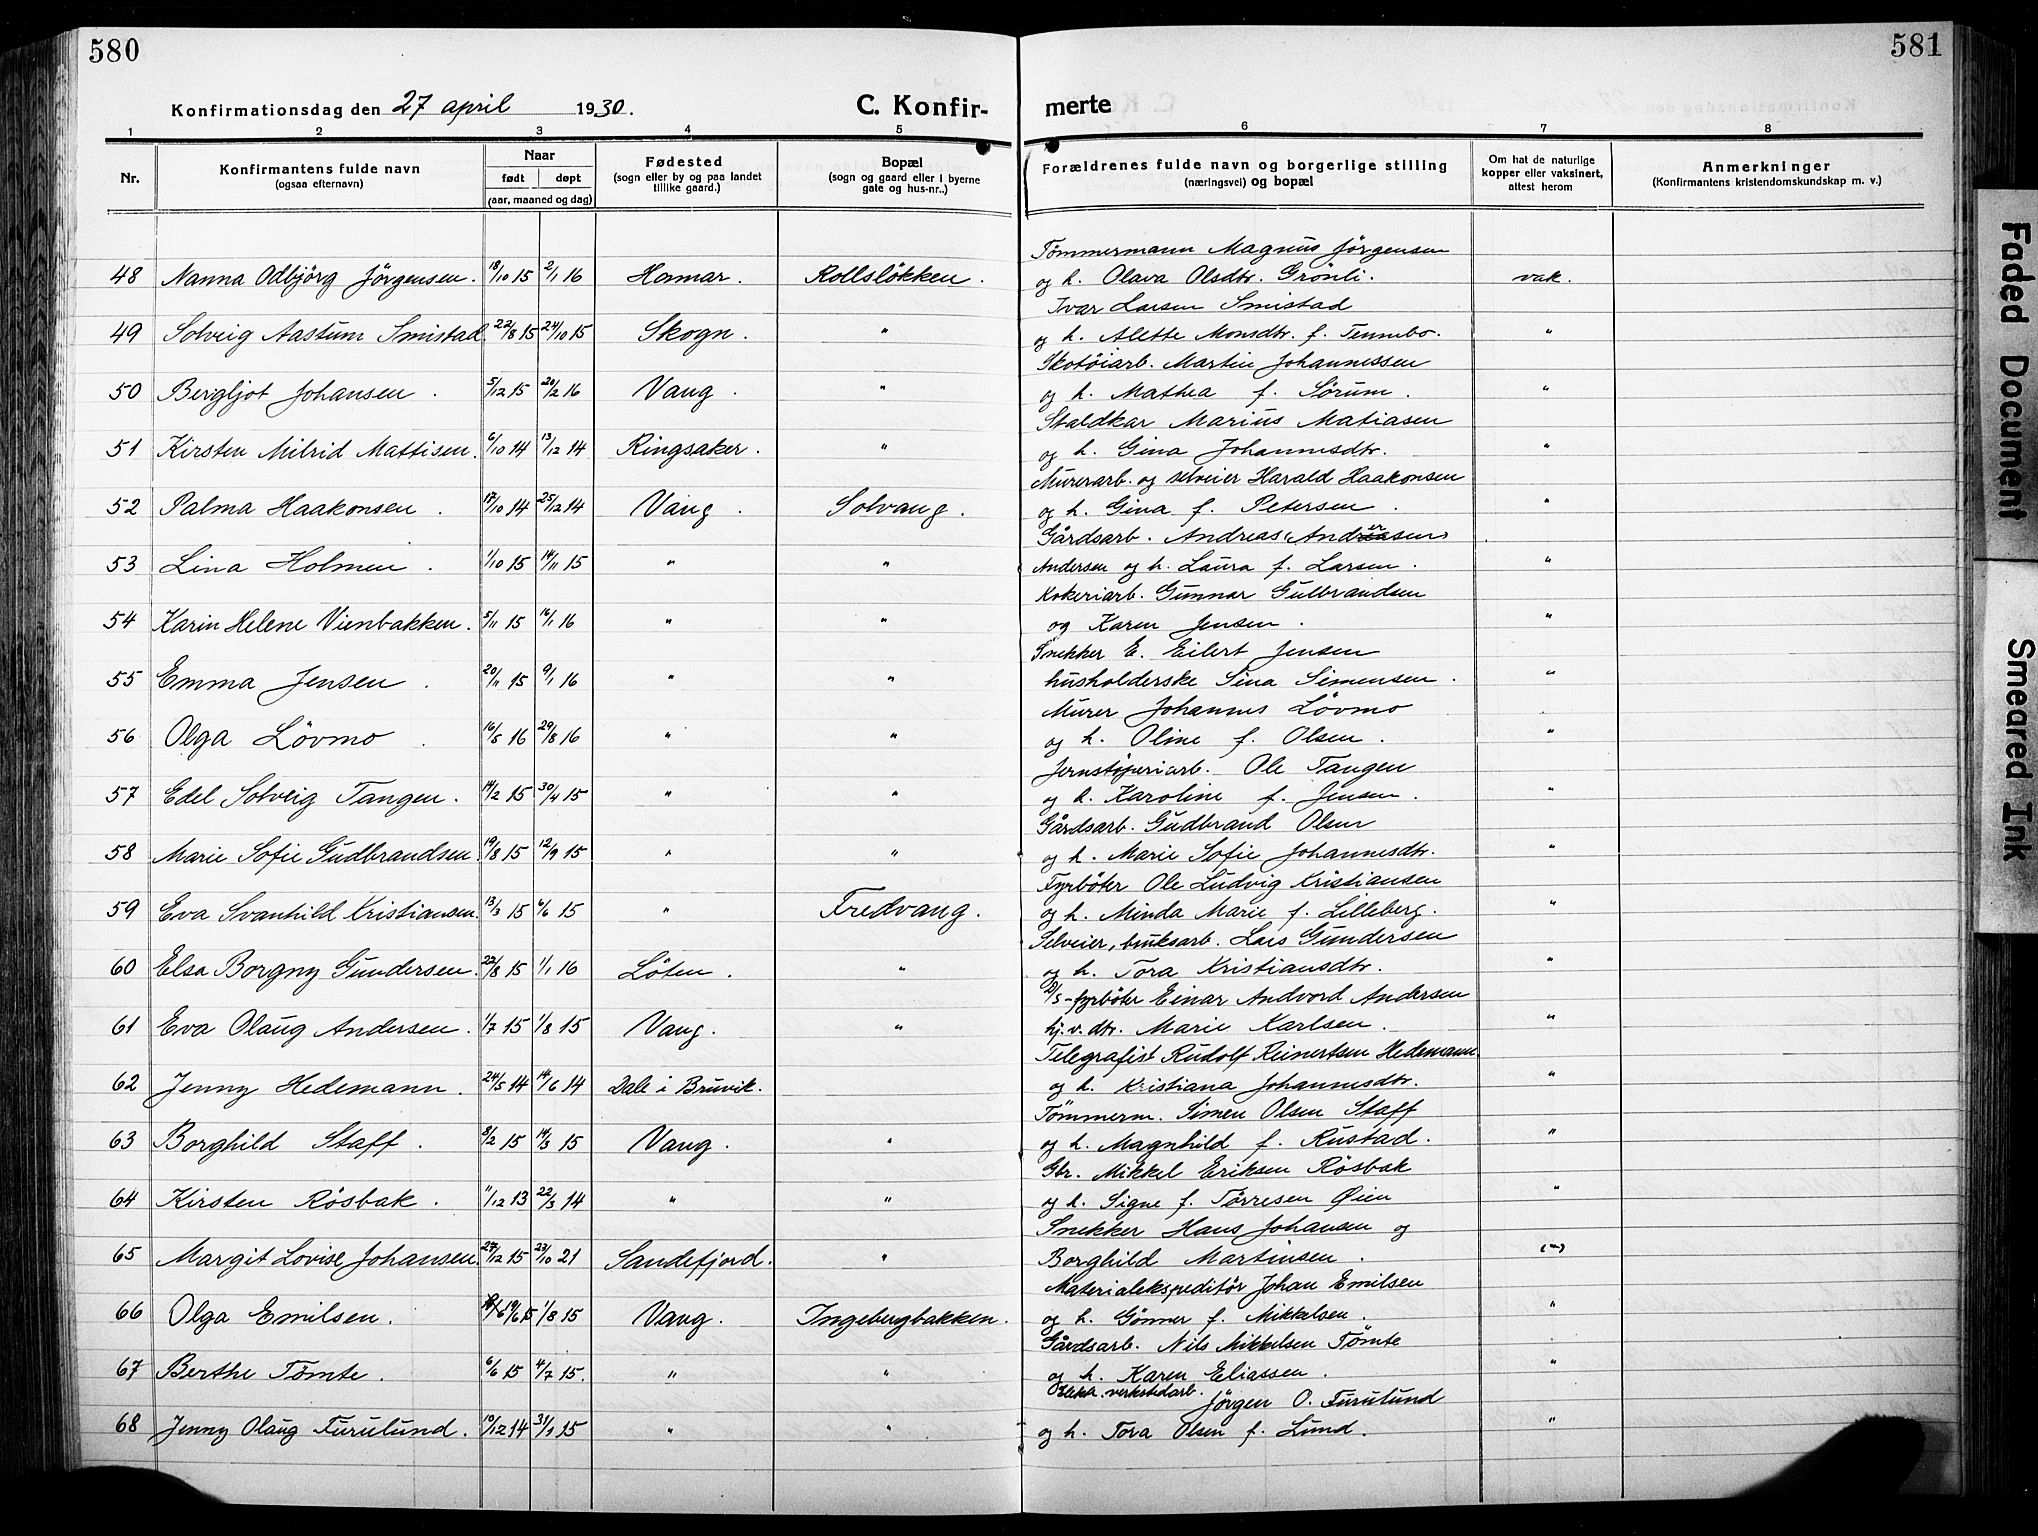 580
581
Konfirmationsdag den 27 april 1930.
C. Konfir-
merte
1 2 3 4 5 6 7 8
Nr.
Konfirmantens fulde navn
(ogsaa efternavn)
Naar
født døpt
(aar, maaned og dag)
Fødested
(sogn eller by og paa landet
tillike gaard.)
Bopæl
(sogn og gaard eller i byerne
gate og hus-nr..)
Forældrenes fulde navn og borgerlige stilling
(næringsvei) og bopæl
Om hat de naturlige
kopper eller vaksinert,
attest herom
Anmerkninger
(Konfirmantens kristendomskundskap m. v.)
Tömmermann Magnus Jörgensen
48 Nanna Odbjörg Jörgensen. 18/10 15 2/1 16 Hamar. Rollsløkken. og h. Olava Olsdtr. Grönli. vak.
Ivar Larsen Smistad
49 Solveig Aastum Smistad. 22/8 15 24/10 15 Skogn. " og h. Alette Monsdtr. f. Tennebo. "
Skotöiarb. Martin Johannessen
50 Bergljot Johansen. 5/12 15 20/2 16 Vang. " og h. Mathea f. Sörum. "
Staldkar Marius Matiasen
51 Kirsten Milrid Mattisen. 6/10 14 13/12 14 Ringsaker. " og h. Gina Johannesdtr. "
Murerarb. og selveier Harald Haakonsen
52 Palma Haakonsen. 17/10 14 25/12 14 Vang. Solvang. og h. Gina f. Petersen. "
Gårdsarb. Andreas Andreasen
53 Lina Holmen. 1/10 15 14/11 15 " " Andersen og h. Laura f. Larsen. "
Kokeriarb. Gunnar Gulbrandsen
54 Karin Helene Vienbakken. 5/11 15 16/1 16 " " og Karen Jensen. "
Snekker E. Eilert Jensen
55 Emma Jensen. 20/11 15 9/1 16 " " husholderske Sina Simensen. "
Murer Johannes Lövmo
56 Olga Lövmo. 16/5 16 29/8 16 " " og h. Oline f. Olsen. "
Jernstøperiarb. Ole Tangen
57 Edel Solveig Tangen. 14/2 15 30/4 15 " " og h. Karoline f. Jensen. "
Gårdsarb. Gudbrand Olsen
58 Marie Sofie Gudbrandsen. 19/8 15 12/9 15 " " og h. Marie Sofie Johannesdtr. "
Fyrböter Ole Ludvig Kristiansen
59 Eva Svanhild Kristiansen. 13/3 15 6/6 15 " Fredvang. og h. Minda Marie f. Lilleberg. "
Selveier, bruksarb. Lars Gundersen
60 Elsa Borgny Gundersen. 22/8 15 1/1 16 Löten. " og h. Tora Kristiansdtr. "
D/S-fyrböter Einar Andvord Andersen
61 Eva Olaug Andersen. 1/7 15 1/8 15 Vang. " hj.v.dtr. Marie Karlsen. "
Telegrafist Rudolf Reinertsen Hedemann
62 Jenny Hedemann. 24/5 14 14/6 14 Dale i Bruvik. og h. Kristiana Johannesdtr. "
Tömmerm. Simen Olsen Staff
63 Borghild Staff. 8/2 15 14/3 15 Vang. " og h. Magnhild f. Rustad. "
Gbr. Mikkel Eriksen Rösbak
64 Kirsten Rösbak. 11/12 13 22/3 14 " " og h. Signe f. Törresen Øien "
Snekker Hans Johansen og
65 Margit Lovise Johansen. 27/12 15 23/10 21 Sandefjord. " Borghild Martinsen. (")
Materialekspeditör Johan Emilsen
66 Olga Emilsen. 19/6 15 1/8 15 Vang. Ingebergbakken. og h. Gönner f. Mikkelsen. "
Gårdsarb. Nils Mikkelsen Tömte
67 Berthe Tömte. 6/6 15 4/7 15. " " og h. Karen Eliassen. "
verkstedarb. Jörgen O. Furulund
68 Jenny Olaug Furulund. 10/12 14 31/1 15 " " og h. Tora Olsen f. Lund. "
Faded Document
Smeared Ink